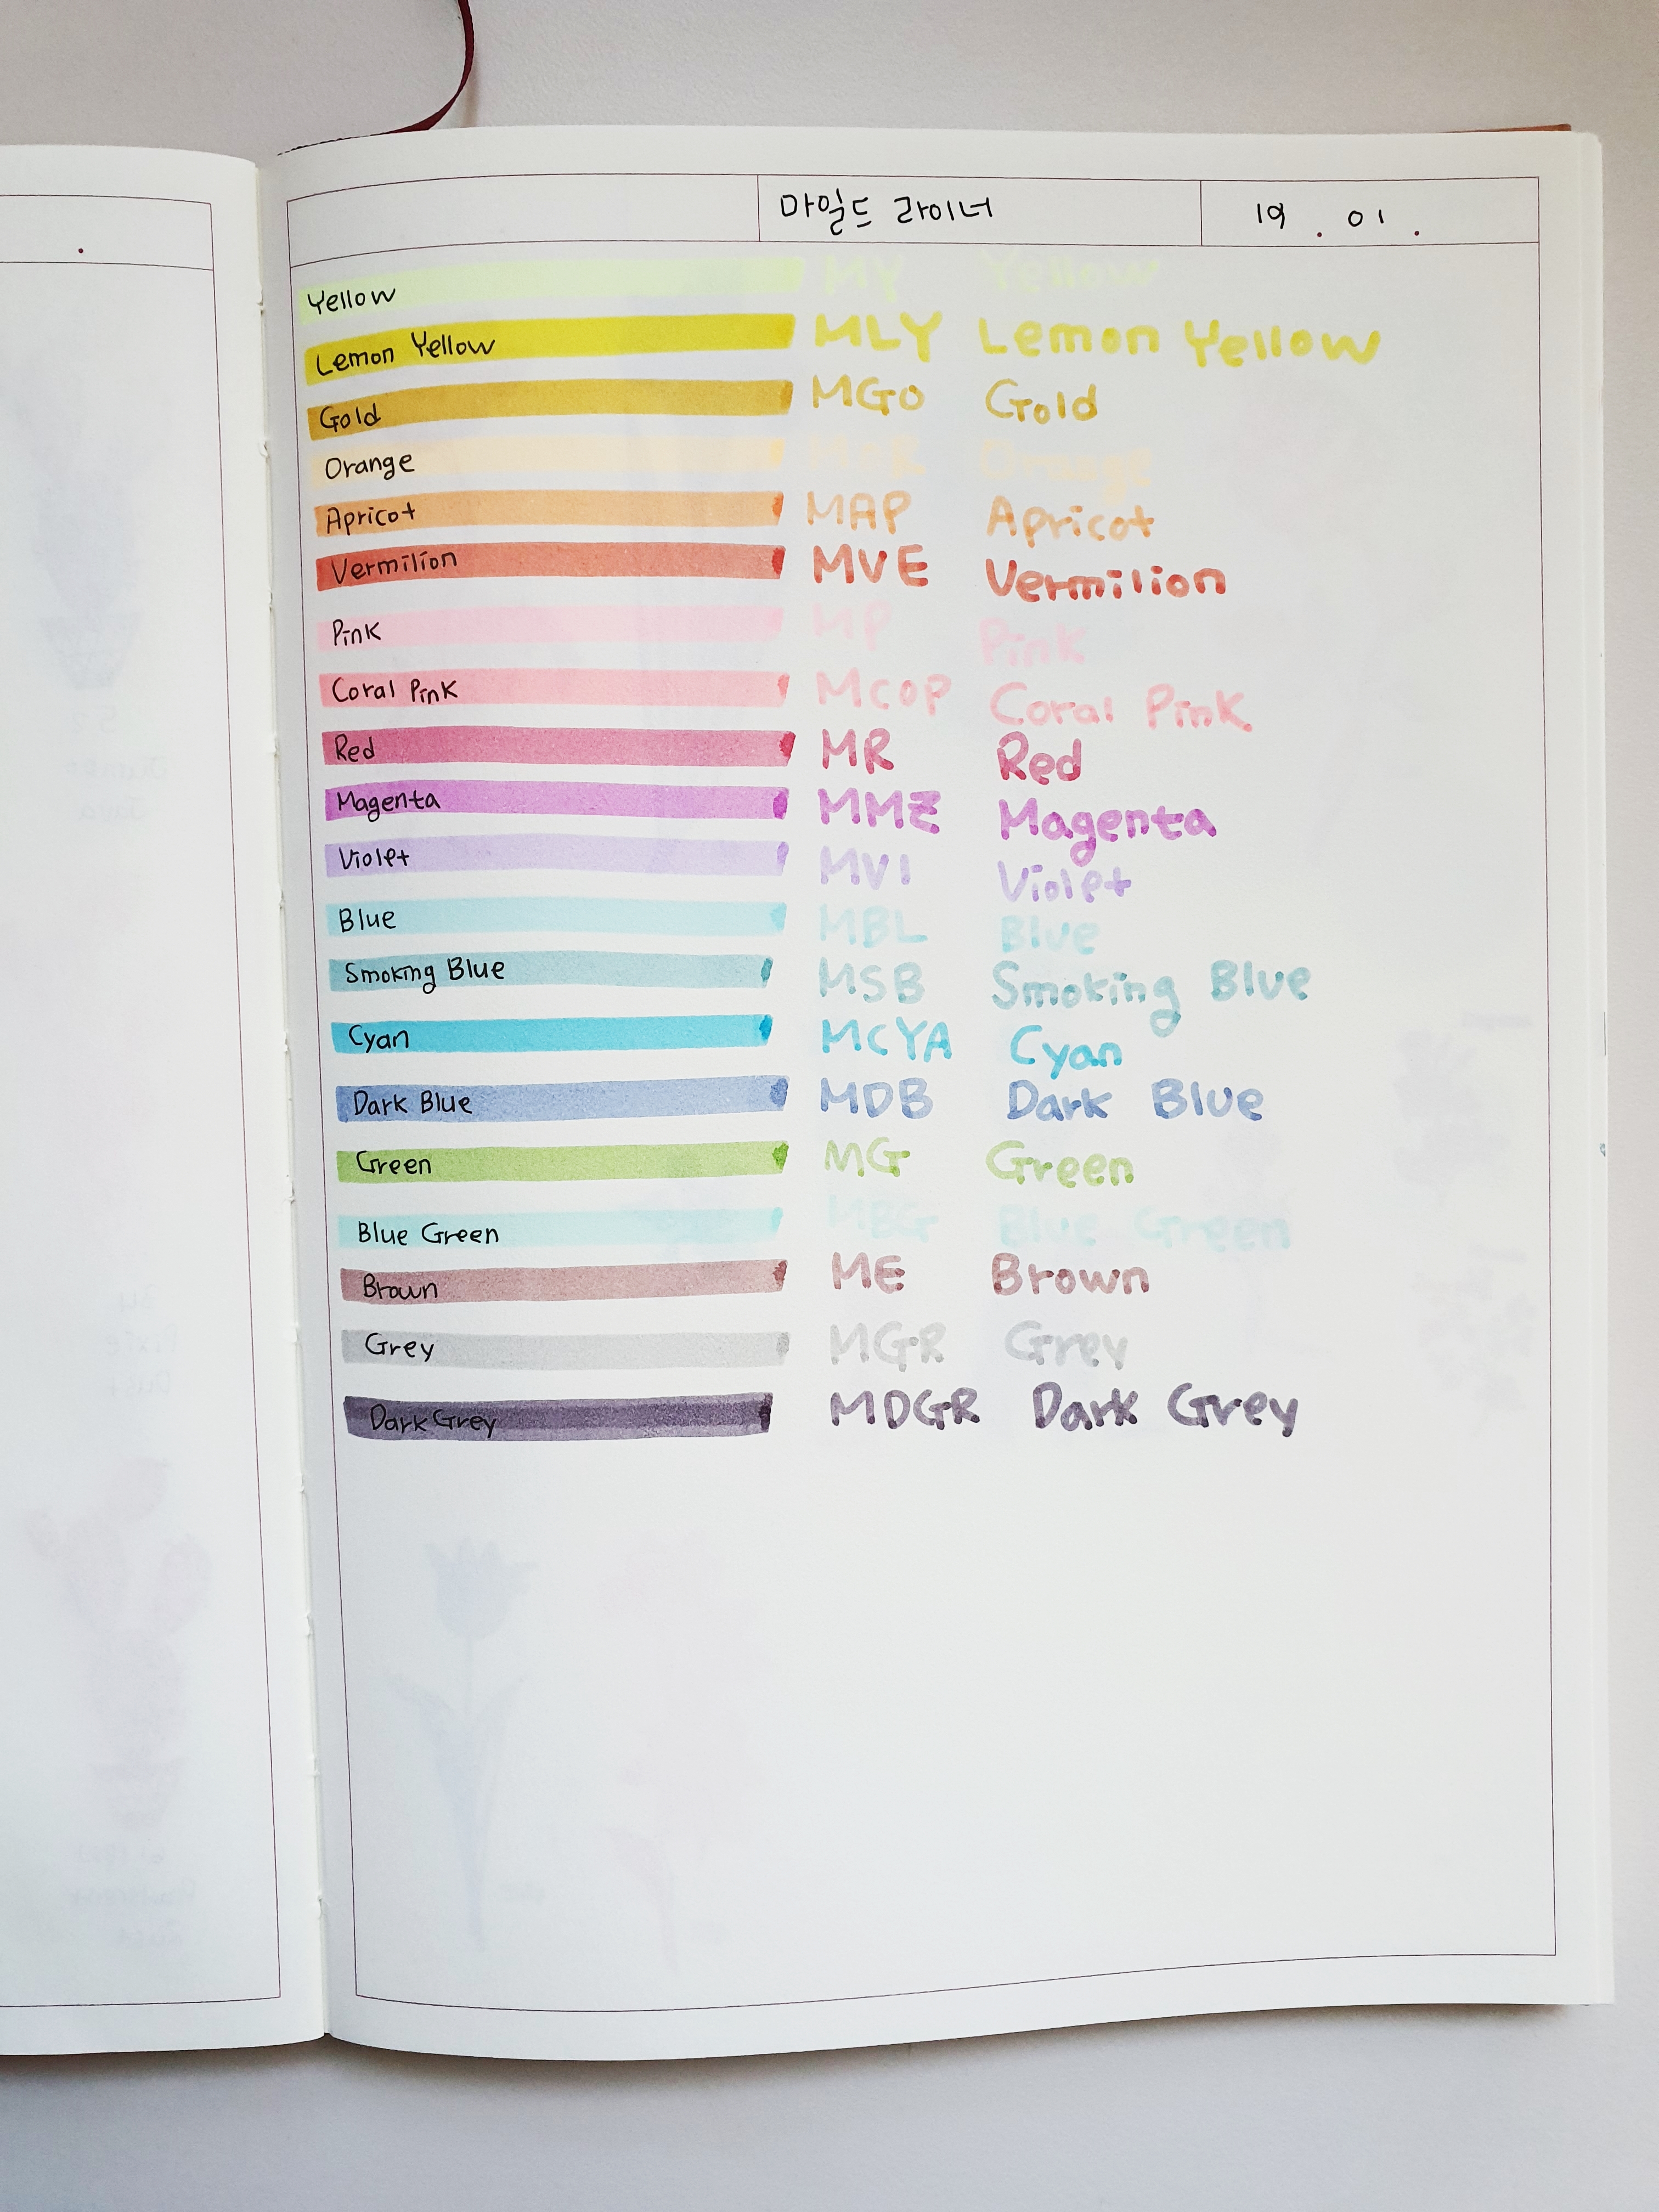 마일드 라이너 19 . 01 .
Yellow MY Yellow
Lemon Yellow MLY Lemon Yellow
Gold MGO Gold
Orange Orange
Apricot MAP Apricot
Vermilion MVE Vermilion
Pink MP Pink
Coral Pink MCOP Coral Pink
Red MR Red
Magenta MMZ Magenta
Violet MVI Violet
Blue MBL Blue
Smoking Blue MSB Smoking Blue
Cyan MCYA Cyan
Dark Blue MDB Dark Blue
Green MG Green
Blue Green MBG Blue Green
Brown ME Brown
Grey MGR Grey
Dark Grey MDGR Dark Grey